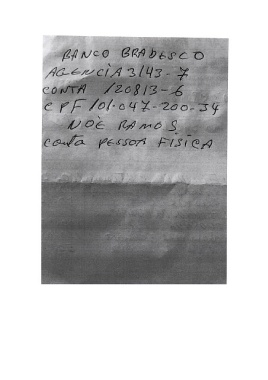 BANCO BRADESCO
AGENCIA 3143-7
CONTA 120813-6
CPF 101-047-200-34
NOÈ RAMOS
CONTA PESSOA FISICA